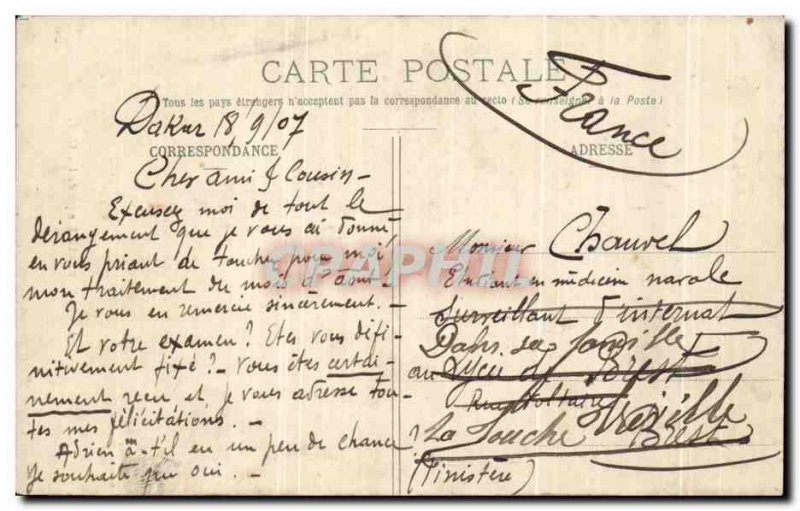 CARTE POSTALE
Tous les pays étrangers n'acceptent pas la correspondance au recto (Se renseigner à la Poste)
France
Dakar 18/9/07
CORRESPONDANCE
ADRESSE
Cher ami & Cousin -
Excusez moi de tout le
dérangement que je vous ai donné,
en vous priant de toucher pour moi,
mon traitement du mois d'août. -
Je vous en remercie sincèrement. -
Et votre examen ? Etes vous défi-
nitivement fixé ? - Vous êtes certai-
nement reçu et je vous adresse tou-
tes mes félicitations. -
Adrien a-t-il eu un peu de chance ?
Je souhaite que oui. -
CPARPHIL
Monsieur Chauvel
Etudiant en médecin navale
Surveillant d'internat
Dans sa famille
au Lycée de Brest
Rue Voltaire
La Souche
Brest
(Finistère)